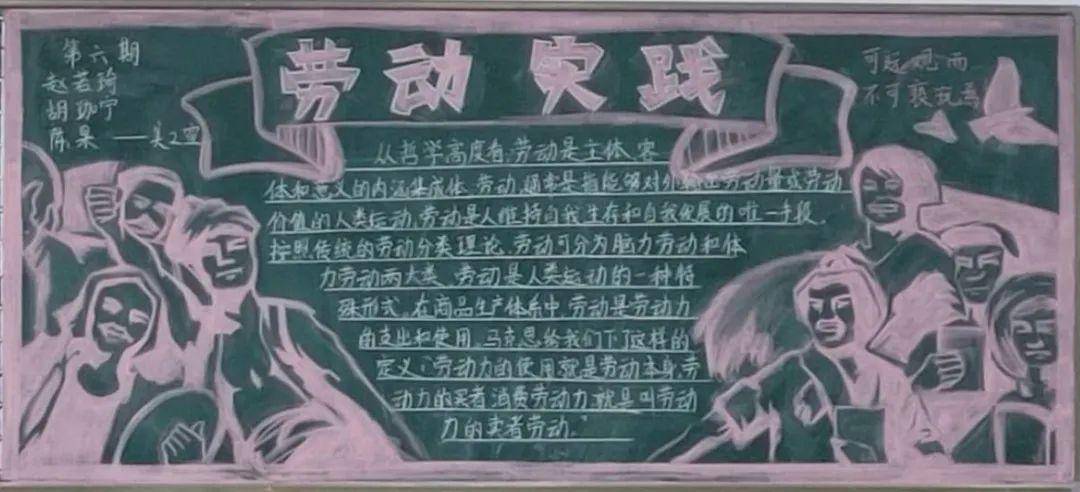 劳动实践
第六期
赵若琦
胡珈宁
陈果 ——吴之
可远观而
不可亵玩焉
从哲学高度看,劳动是主体、客
体和意义的内涵集成体。劳动,通常是指能够对外输出劳动量或劳动
价值的人类运动,劳动是人维持自我生存和自我发展的唯一手段。
按照传统的劳动分类理论,劳动可分为脑力劳动和体
力劳动两大类。劳动是人类运动的一种特
殊形式。在商品生产体系中,劳动是劳动力
的支出和使用。马克思给我们下了这样的
定义:“劳动力的使用就是劳动本身,劳
动力的买者消费劳动力,就是叫劳动
力的卖者劳动。”